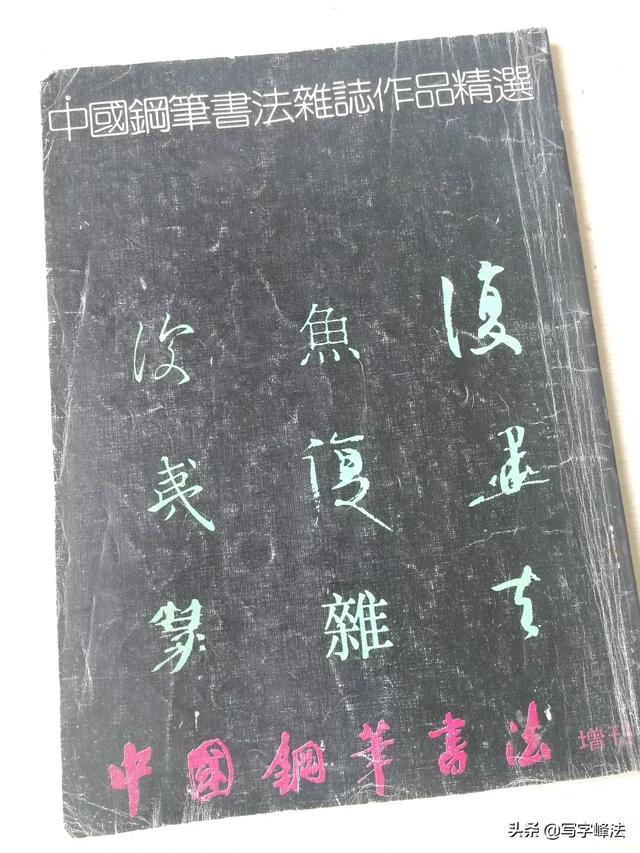 中國鋼筆書法雜誌作品精選
魚 復
夷 復
雜
中國鋼筆書法 增刊
头条 @写字峰法